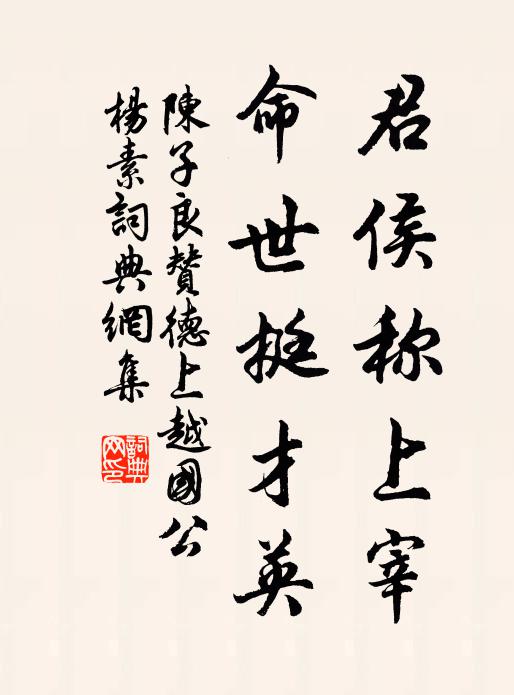 君侯称上宰
命世挺才英
陳子良贊德上越國公
楊素詞典網集
詞典网印